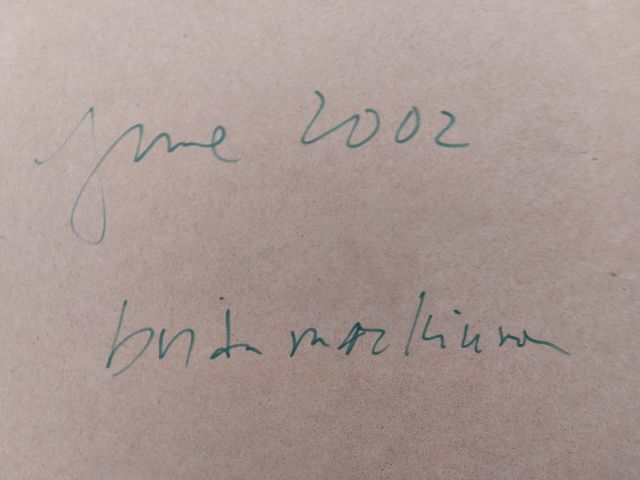 June 2002
brian mackinnon